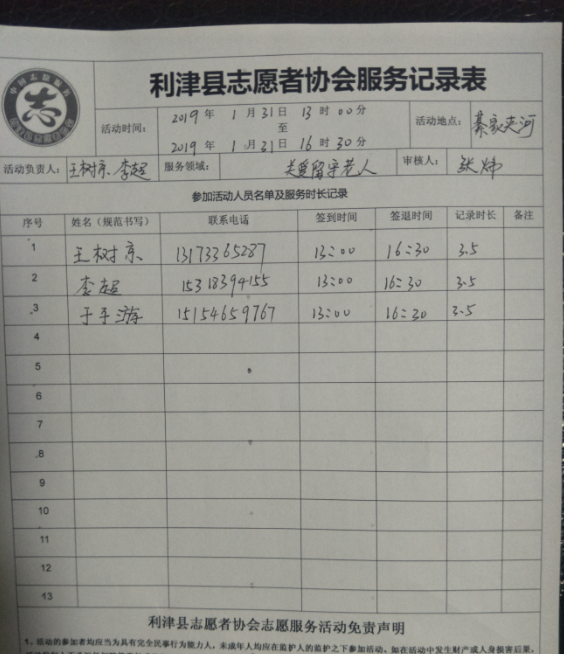 志
利津县志愿者协会服务记录表
活动时间: 2019 年 1 月 31 日 13 时 00 分
至
2019 年 1 月 31 日 16 时 30 分
活动地点: 綦家夹河
活动负责人: 王树京 李超 服务领域: 关爱留守老人 审核人: 张炜
参加活动人员名单及服务时长记录
序号 姓名（规范书写） 联系电话 签到时间 签退时间 记录时长 备注
1 王树京 13173365287 13:00 16:30 3.5
2 李超 15318394155 13:00 16:30 3.5
3 于平游 15154659767 13:00 16:30 3.5
4
5
6
7
8
9
10
11
12
13
利津县志愿者协会志愿服务活动免责声明
1、活动的参加者均应当为具有完全民事行为能力人，未成年人均应在监护人的监护之下参加活动。如在活动中发生财产或人身损害后果，